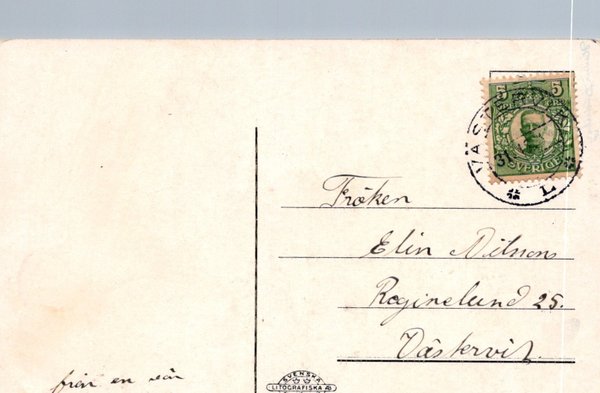 5 5
VÄSTERVIK
31
SVERIGE
L
Fröken
Elin Nilsson
Reginelund 25.
Västervik.
från en vän
SVENSKA
LITOGRAFISKA AB